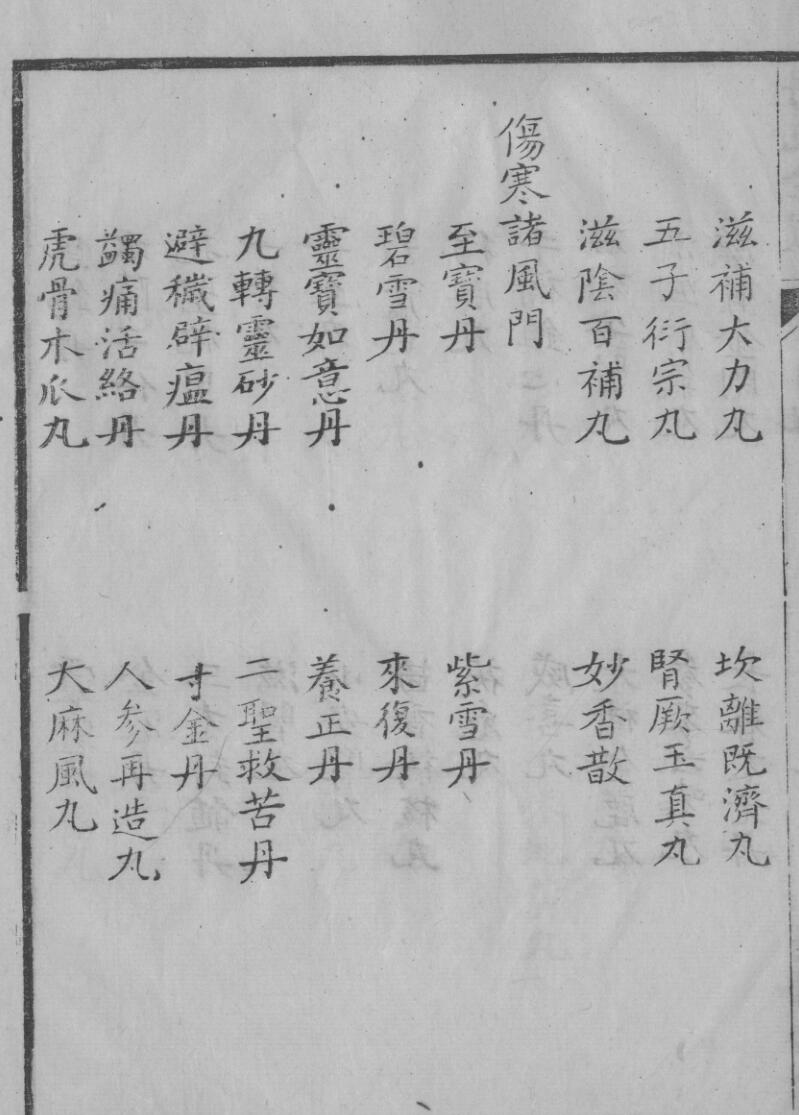 滋補大力丸
坎離既濟丸
五子衍宗丸
腎厥玉真丸
滋陰百補丸
妙香散
傷寒諸風門
至寶丹
紫雪丹
碧雪丹
來復丹
靈寶如意丹
養正丹
九轉靈砂丹
二聖救苦丹
避穢辟瘟丹
寸金丹
蠲痛活絡丹
人參再造丸
虎骨木瓜丸
大麻風丸